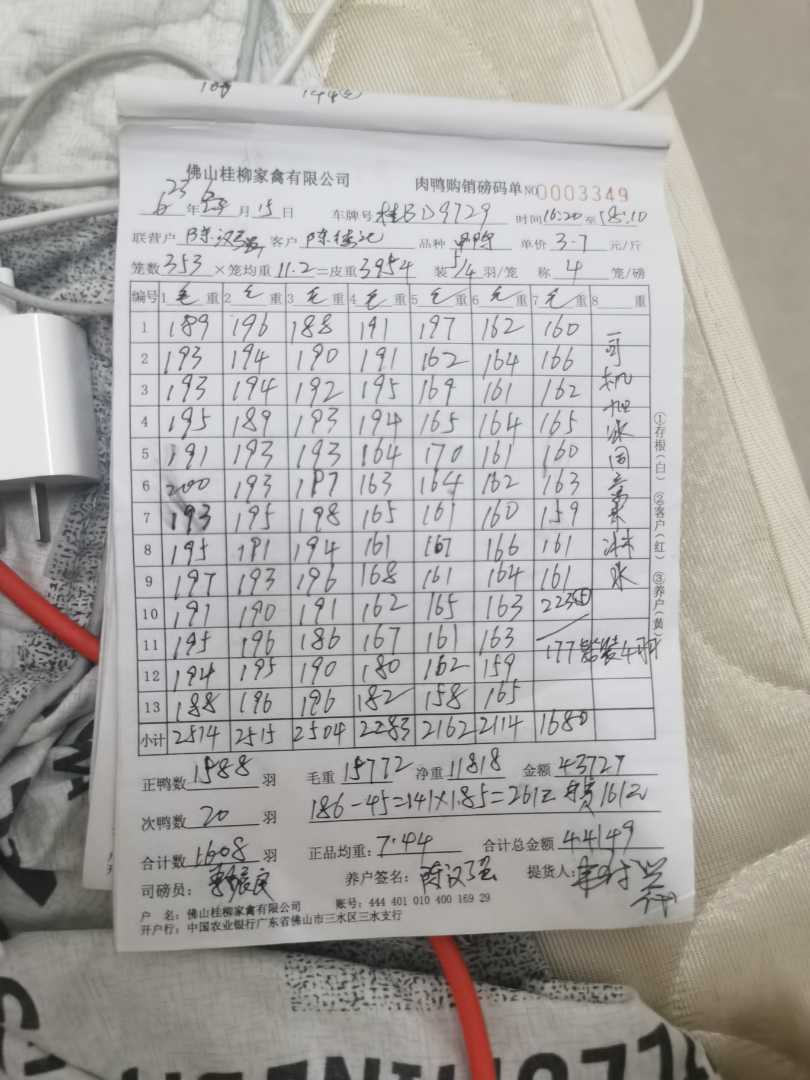 佛山桂柳家禽有限公司 肉鸭购销磅码单 NO 0003349
23 6
6 年 月 15 日 车牌号 桂BD9729 时间 16:20 至 18:10
联营户 陈汉强 客户 陈桂记 品种 单价 3.7 元/斤
笼数 353 ×笼均重 11.2 =皮重 3954 装 5/4 羽/笼 称 4 笼/磅
编号 1 毛 重 2 毛 重 3 毛 重 4 毛 重 5 毛 重 6 毛 重 7 毛 重 8 重
1 189 196 188 191 197 162 160
2 193 194 190 191 162 164 166
3 193 194 192 195 169 161 162
4 195 189 193 194 165 164 165
5 191 193 193 164 170 161 160
6 200 193 197 163 164 162 163
7 193 195 198 165 161 160 159
8 195 191 194 161 167 166 161
9 197 193 196 168 161 164 161
10 191 190 191 162 165 163 223⑤
11 195 196 186 167 161 163
177 装4羽
12 194 195 190 180 162 159
13 188 196 196 182 158 165
小计 2514 2515 2504 2283 2162 2114 1680
司机
淋水
①存根(白) ②客户(红) ③养户(黄)
正鸭数 1588 羽 毛重 15772 净重 11818 金额 43727
次鸭数 20 羽 186-45=141×1.85=261元 161元
合计数 1608 羽 正品均重: 7.44 合计总金额 44149
司磅员: 养户签名: 陈汉强 提货人:
户 名: 佛山桂柳家禽有限公司 账号: 444 401 010 400 169 29
开户行: 中国农业银行广东省佛山市三水区三水支行